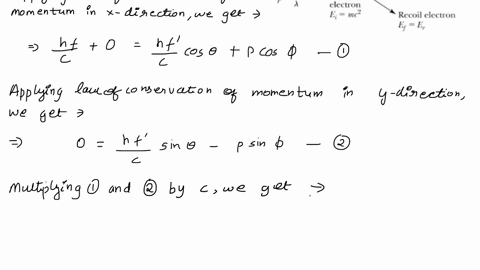 momentum in x-direction, we get →
λ
electron
E_i = mc²
Recoil electron
E_f = E_r
⇒ hf/c + 0 = hf'/c cos θ + p cos ϕ — ①
Applying law of conservation of momentum in y-direction,
we get →
⇒ 0 = hf'/c sin θ - p sin ϕ — ②
Multiplying ① and ② by c, we get →